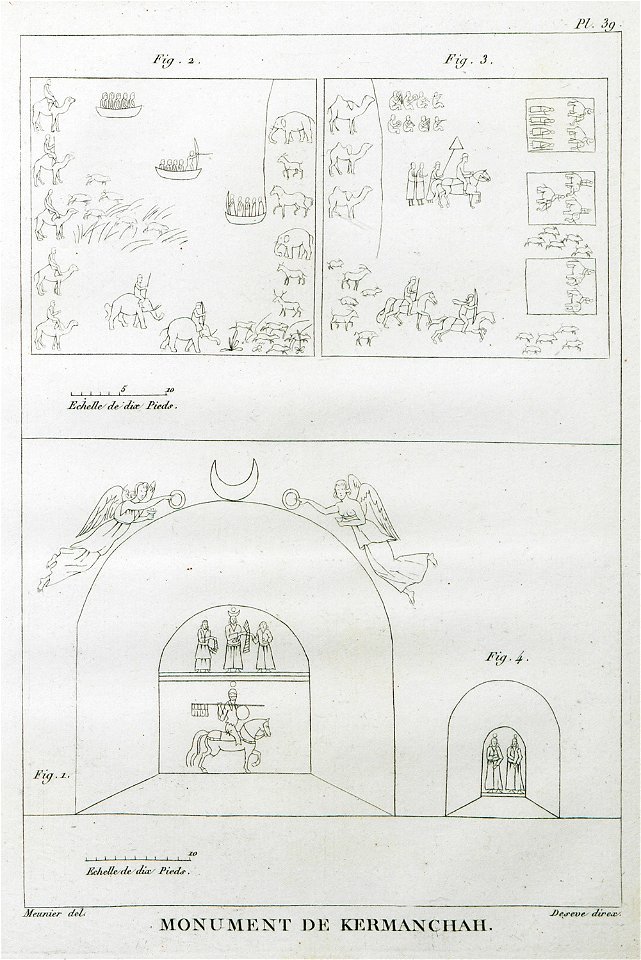 Pl. 39.
Fig. 2.
Fig. 3.
5 10
Echelle de dix Pieds.
Fig. 4.
Fig. 1.
10
Echelle de dix Pieds.
Meunier del.
Deseve direx.
MONUMENT DE KERMANCHAH.